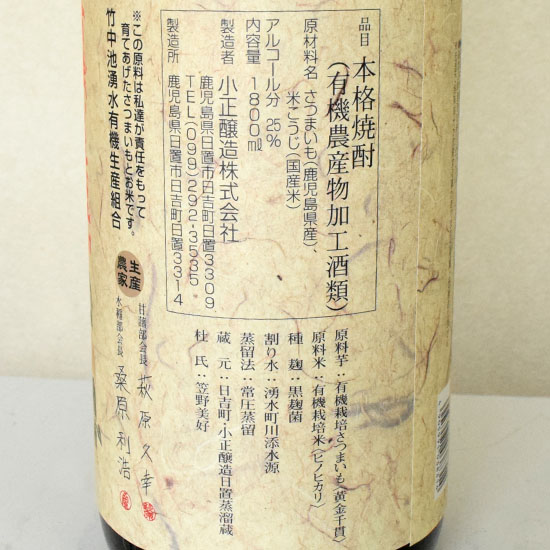 品目 本格焼酎
(有機農産物加工酒類)
原材料名 さつまいも(鹿児島県産)、
米こうじ(国産米)
アルコール分 25%
内容量 1800ml
製造者 小正醸造株式会社
鹿児島県日置市日吉町日置3309
TEL(099)292-3535
製造所 鹿児島県日置市日吉町日置3314
※この原料は私達が責任をもって
育てあげたさつまいもとお米です。
竹中池湧水有機生産組合
生産農家
甘藷部会長 萩原久幸
水稲部会長 桑原利浩
原料芋:有機栽培さつまいも(黄金千貫)
原料米:有機栽培米(ヒノヒカリ)
種麹:黒麹菌
割り水:湧水町川添水源
蒸留法:常圧蒸留
蔵元:日吉町・小正醸造日置蒸溜蔵
杜氏:笠野美好